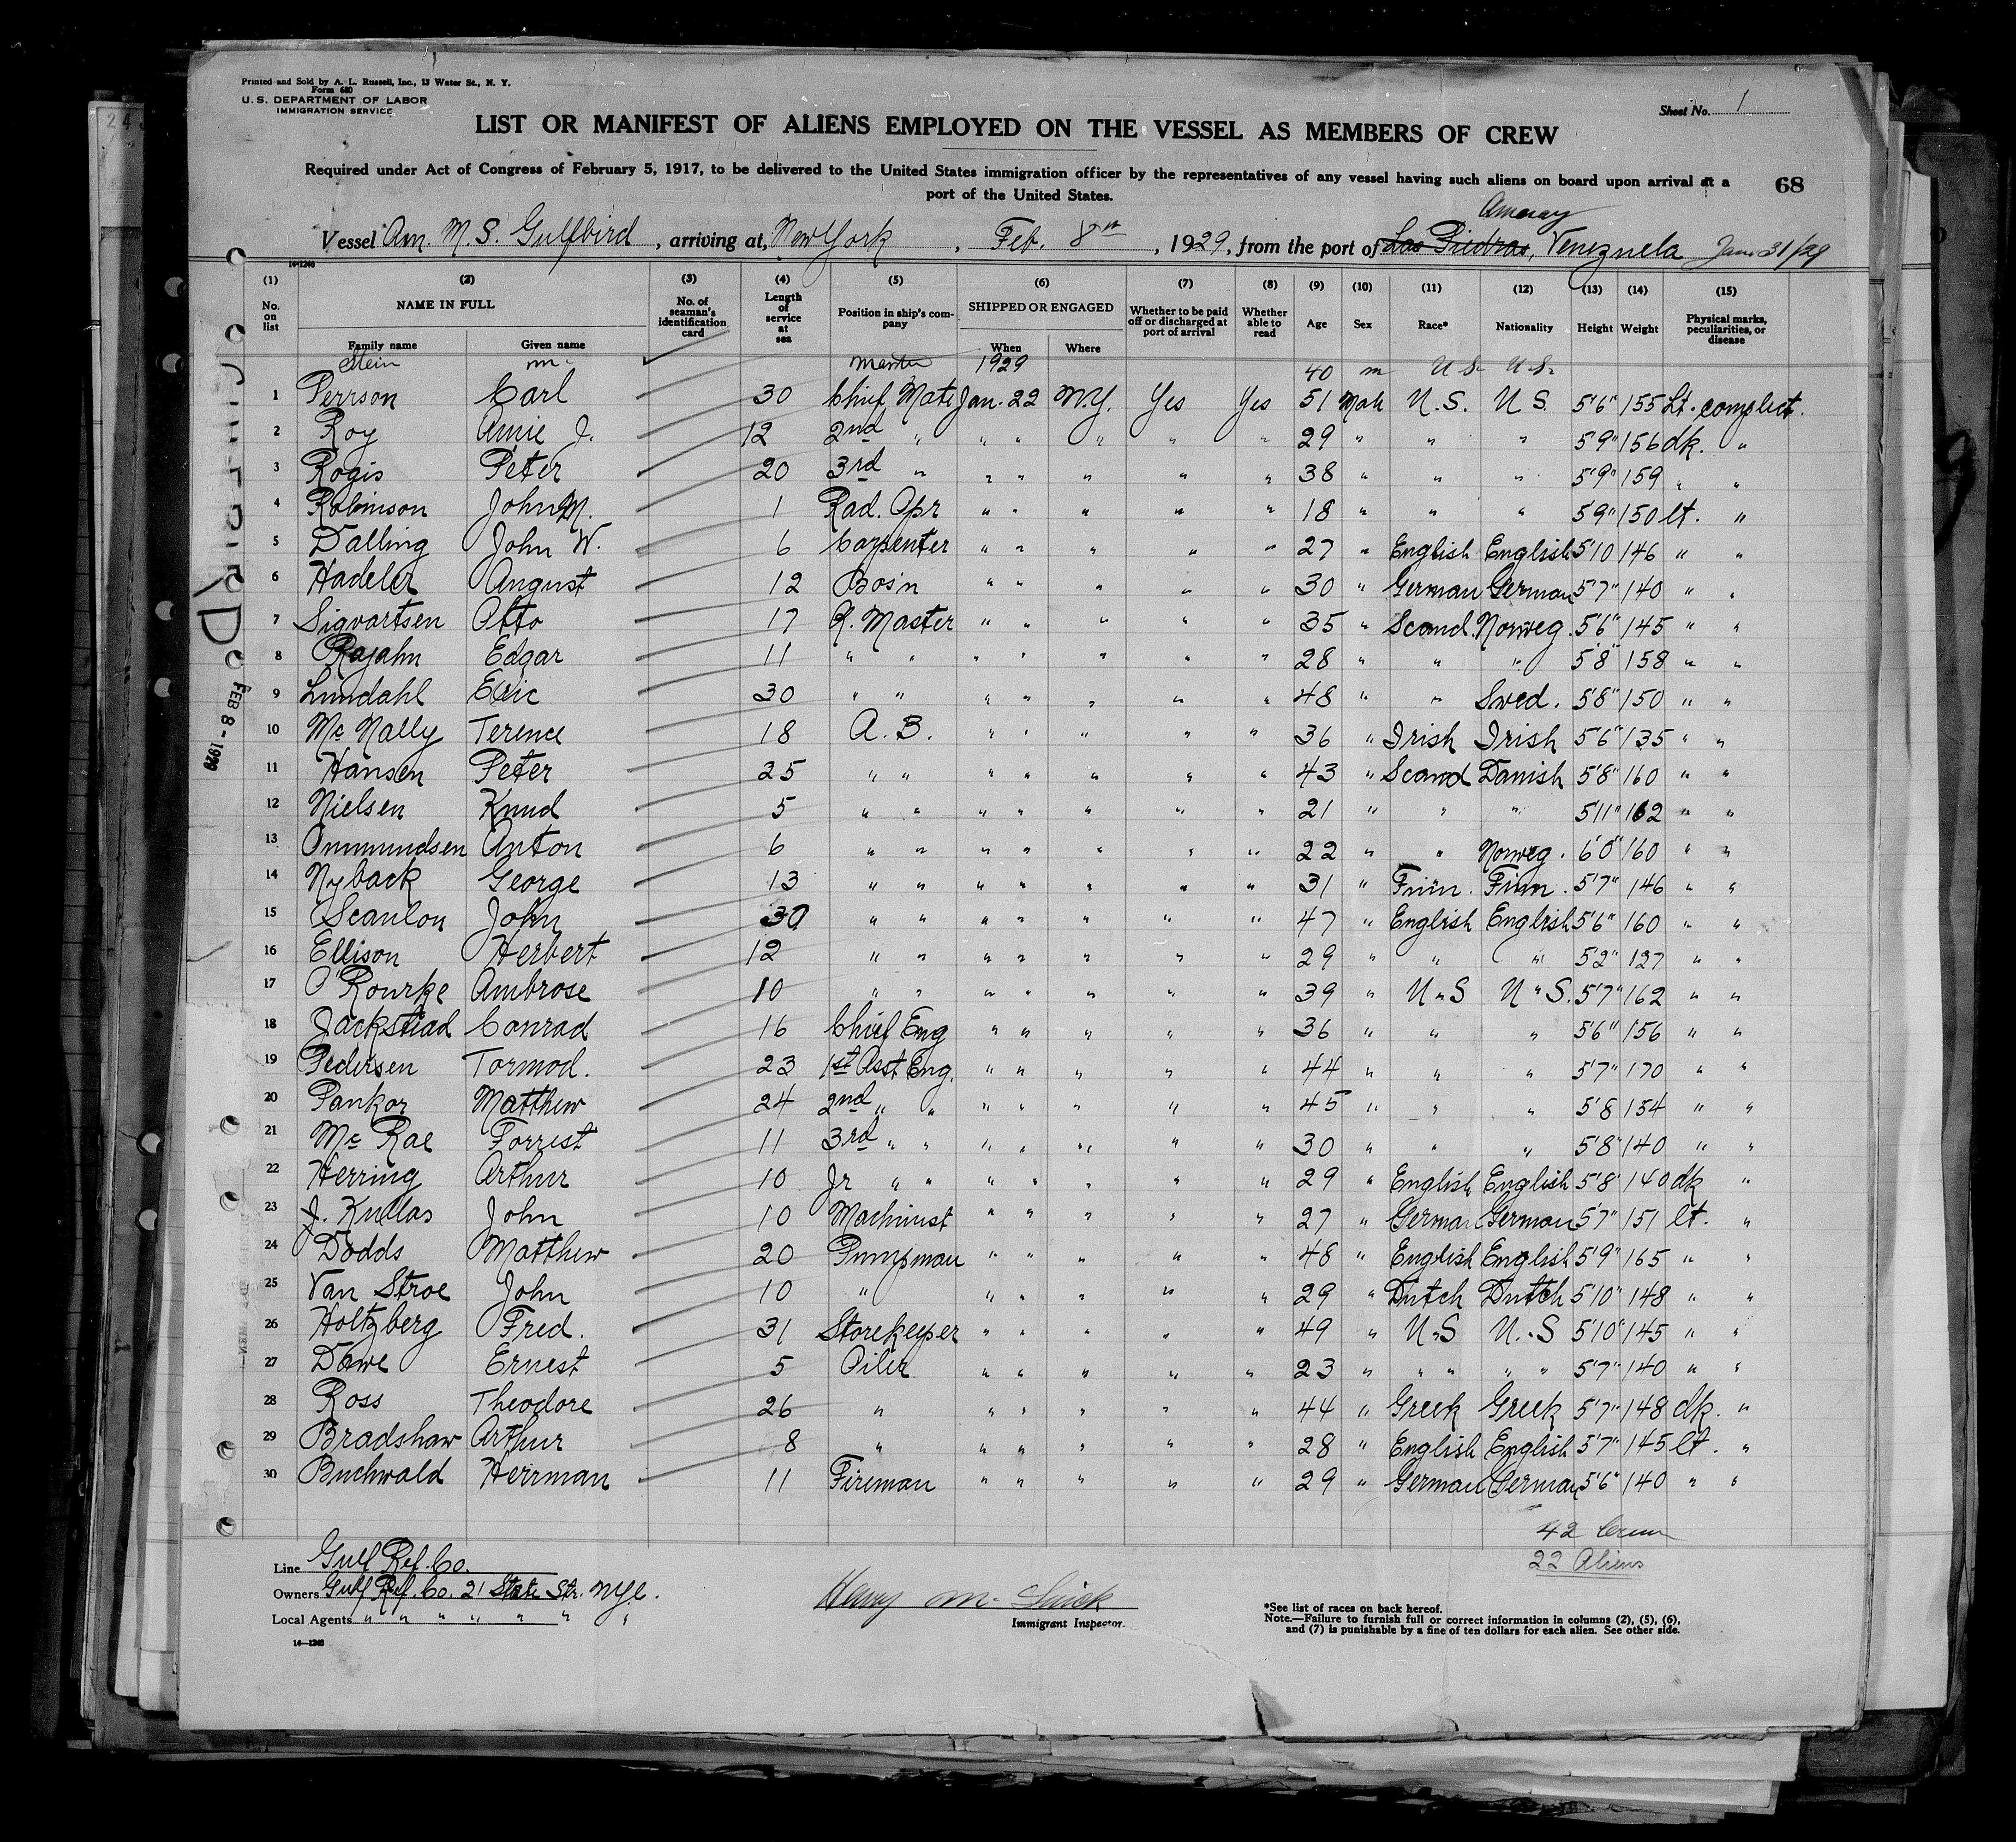 Printed and Sold by A. L. Russell, Inc., 13 Water St., N. Y.
Form 680
U. S. DEPARTMENT OF LABOR
IMMIGRATION SERVICE
Sheet No. 1
LIST OR MANIFEST OF ALIENS EMPLOYED ON THE VESSEL AS MEMBERS OF CREW
Required under Act of Congress of February 5, 1917, to be delivered to the United States immigration officer by the representatives of any vessel having such aliens on board upon arrival at a
port of the United States.
68
Vessel Am. M. S. Gulfbird, arriving at, New York, Feb. 8th, 1929, from the port of Las Piedras, Venezuela Jan 31/29
14-1240
(1) (2) (3) (4) (5) (6) (7) (8) (9) (10) (11) (12) (13) (14) (15)
No. on list NAME IN FULL No. of seaman's identification card Length of service at sea Position in ship's company SHIPPED OR ENGAGED Whether to be paid off or discharged at port of arrival Whether able to read Age Sex Race* Nationality Height Weight Physical marks, peculiarities, or disease
Family name Given name When Where
Stein m Master 1929 40 m U.S. U.S.
1 Perrson Carl 30 Chief Mate Jan. 22 N.Y. Yes Yes 51 Male U.S. U S. 5'6" 155 Lt. complect.
2 Roy Amie J. 12 2nd " " " " " " 29 " " " 5'9" 156 dk. "
3 Rogis Peter 20 3rd " " " " " " 38 " " " 5'9" 159 " "
4 Robinson John M. 1 Rad. Opr " " " " " 18 " " " 5'9" 150 lt. "
5 Dalling John W. 6 Carpenter " " " " " 27 " English English 5'10 146 " "
6 Hadeler August 12 Bos'n " " " " " 30 " German German 5'7" 140 " "
7 Sigvartsen Otto 17 Q. Master " " " " " 35 " Scand. Norweg. 5'6" 145 " "
8 Rajahn Edgar 11 " " " " " " " 28 " " " 5'8" 158 " "
9 Lundahl Eric 30 " " " " " " " 48 " " Swed. 5'8" 150 " "
10 Mc Nally Terence 18 A. B. " " " " " 36 " Irish Irish 5'6" 135 " "
11 Hansen Peter 25 " " " " " " " 43 " Scand Danish 5'8" 160 " "
12 Nielsen Knud 5 " " " " " " " 21 " " " 5'11" 162 " "
13 Ommundsen Anton 6 " " " " " " " 22 " " Norweg. 6'0" 160 " "
14 Nyback George 13 " " " " " " " 31 " Finn. Finn. 5'7" 146 " "
15 Scanlon John 30 " " " " " " " 47 " English English 5'6" 160 " "
16 Ellison Herbert 12 " " " " " " " 29 " " " 5'2" 127 " "
17 O'Rourke Ambrose 10 " " " " " " " 39 " U.S U.S. 5'7" 162 " "
18 Jackstiad Conrad 16 Chief Eng " " " " " 36 " " " 5'6" 156 " "
19 Pedersen Tormod. 23 1st Asst Eng. " " " " " 44 " " " 5'7" 170 " "
20 Pankor Matthew 24 2nd " " " " " " " 45 " " " 5'8 154 " "
21 Mc Rae Forrest 11 3rd " " " " " " " 30 " " " 5'8" 140 " "
22 Herring Arthur 10 Jr " " " " " " " 29 " English English 5'8" 140 dk "
23 J. Kullas John 10 Machinist " " " " " 27 " German German 5'7" 151 lt. "
24 Dodds Matthew 20 Pumpman " " " " " 48 " English English 5'9" 165 " "
25 Van Stroe John 10 " " " " " " 29 " Dutch Dutch 5'10" 148 " "
26 Holtzberg Fred. 31 Storekeeper " " " " " 49 " U.S U.S 5'10" 145 " "
27 Dawe Ernest 5 Oiler " " " " " 23 " " " " " 5'7" 140 " "
28 Ross Theodore 26 " " " " " " 44 " Greek Greek 5'7" 148 dk. "
29 Bradshaw Arthur 8 " " " " " " 28 " English English 5'7" 145 lt. "
30 Buchwald Herrman 11 Fireman " " " " " 29 " German German 5'6" 140 " "
42 Crew
22 Aliens
Line Gulf Ref. Co.
Owners Gulf Ref. Co. 21 State Str. NYC.
Local Agents " " " " " " "
Immigrant Inspector.
*See list of races on back hereof.
Note.—Failure to furnish full or correct information in columns (2), (5), (6),
and (7) is punishable by a fine of ten dollars for each alien. See other side.
14-1240
GULFBIRD
FEB 8 - 1929